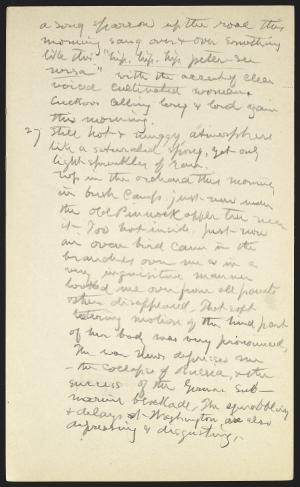 a song sparrow up the road this
morning sang over & over something
like this "hip, hip, hip, peter-see
" with the accent of clear
voiced cultivated woman.
Cuckoos calling long & loud again
this morning.
27 Still hot & muggy atmosphere
like a saturated spong, yet only
light sprinkles of rain.
Up in the orchard this morning
in bush camp, just now under
the old Pinnock apple tree near
it - Too hot inside. Just now
an oven bird came in the
branches over me & in a
very inquisitive manner
looked me over from all points
then disappeared. That soft
motion of the hind part
of her body was very pronounced.
The war news depresses me
- the collapse of Russia, & the
success of the German sub-
marine blockade. The squabbling
& delays at Washington are also
depressing & disgusting.